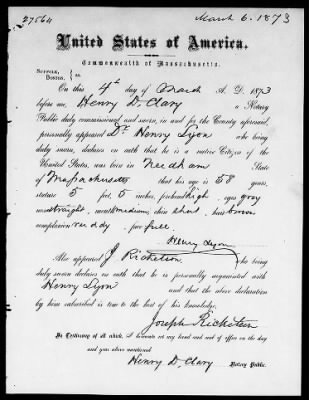 27564
March 6. 1873
United States of America.
Commonwealth of Massachusetts.
SUFFOLK,
BOSTON. } ss.
On this 4th day of March A. D. 1873
before me, Henry D. Clary a Notary
Public duly commissioned and sworn, in and for the County aforesaid,
personally appeared Dr. Henry Lyon who being
duly sworn, declares on oath that he is a native Citizen of the
United States, was born in Needham State
of Massachusetts that his age is 58 years,
stature 5 feet, 5 inches, forehead high, eyes gray
nose straight, mouth medium, chin short, hair brown
complexion ruddy, face full.
Henry Lyon
Also appeared J Ricketson who being
duly sworn declares on oath that he is personally acquainted with
Henry Lyon and that the above declaration
by him subscribed is true to the best of his knowledge.
Joseph Ricketson
In Testimony of all which, I hereunto set my hand and seal of office on the day
and year above mentioned.
Henry D. Clary Notary Public.